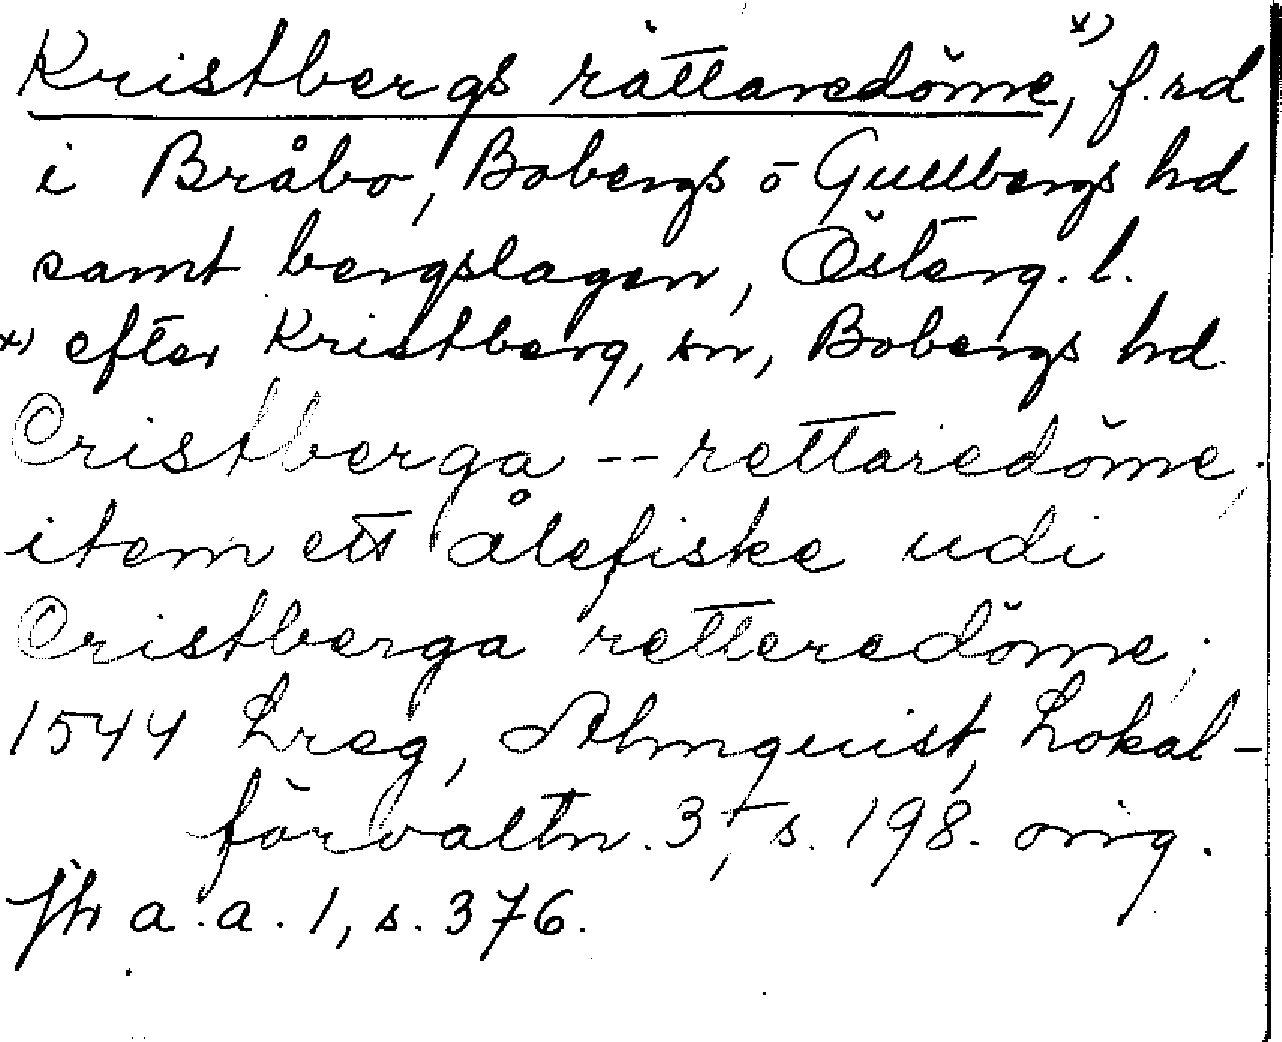 Kristbergs rättaredöme,ˣ⁾ f.rd
i Bråbo, Bobergs o Gullbergs hd
samt bergslagen, Österg. l.
x) efter Kristberg, sn, Bobergs hd
Cristberga -- rettaredöme;
item ett ålefiske udi
Cristberga retteredöme;
1544 Lreg, Almquist, Lokal-
förvaltn. 3, s. 198. orig.
Jfr a.a. 1, s. 376.